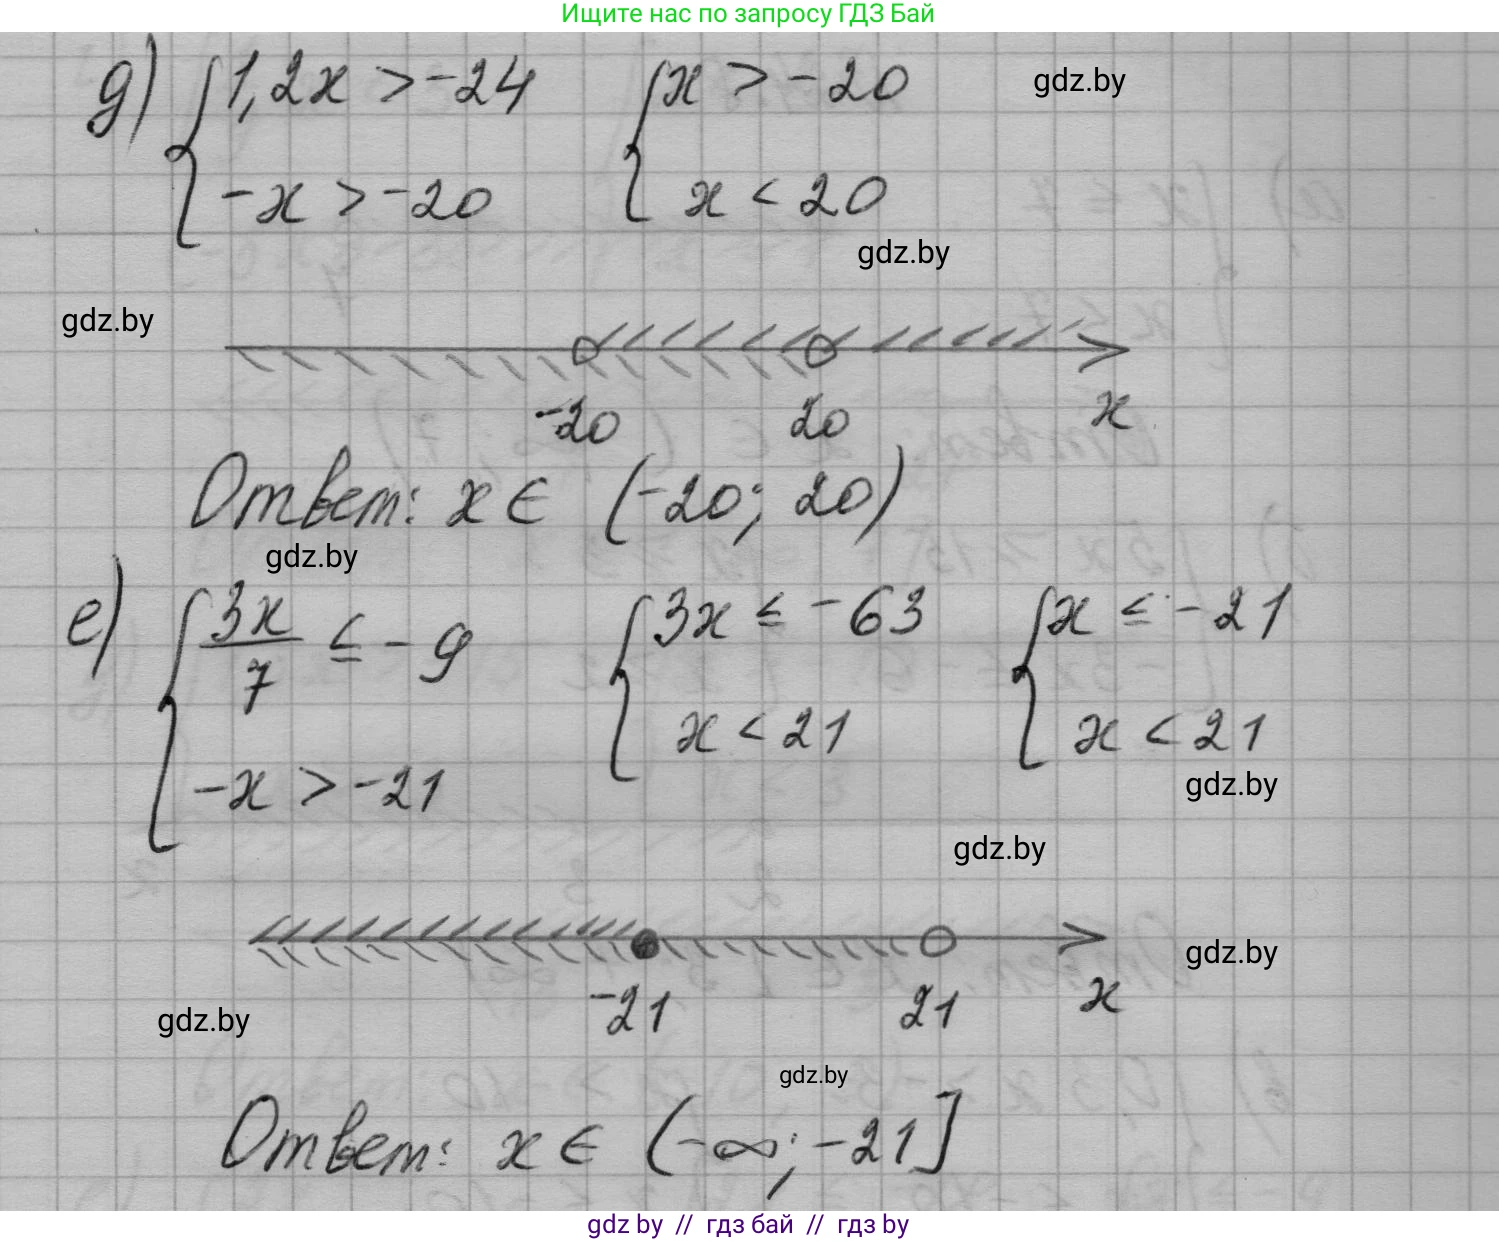 Ищите нас по запросу ГДЗ Бай
д) { 1,2x > -24 { x > -20
gdz.by
-x > -20 x < 20
gdz.by
gdz.by
-20 20 x
Ответ: x ∈ (-20; 20)
gdz.by
е) { 3x/7 ≤ -9 { 3x ≤ -63 { x ≤ -21
-x > -21 x < 21 x < 21
gdz.by
gdz.by
gdz.by
-21 21 x
gdz.by
gdz.by
Ответ: x ∈ (-∞; -21]
gdz by // гдз бай // гдз by